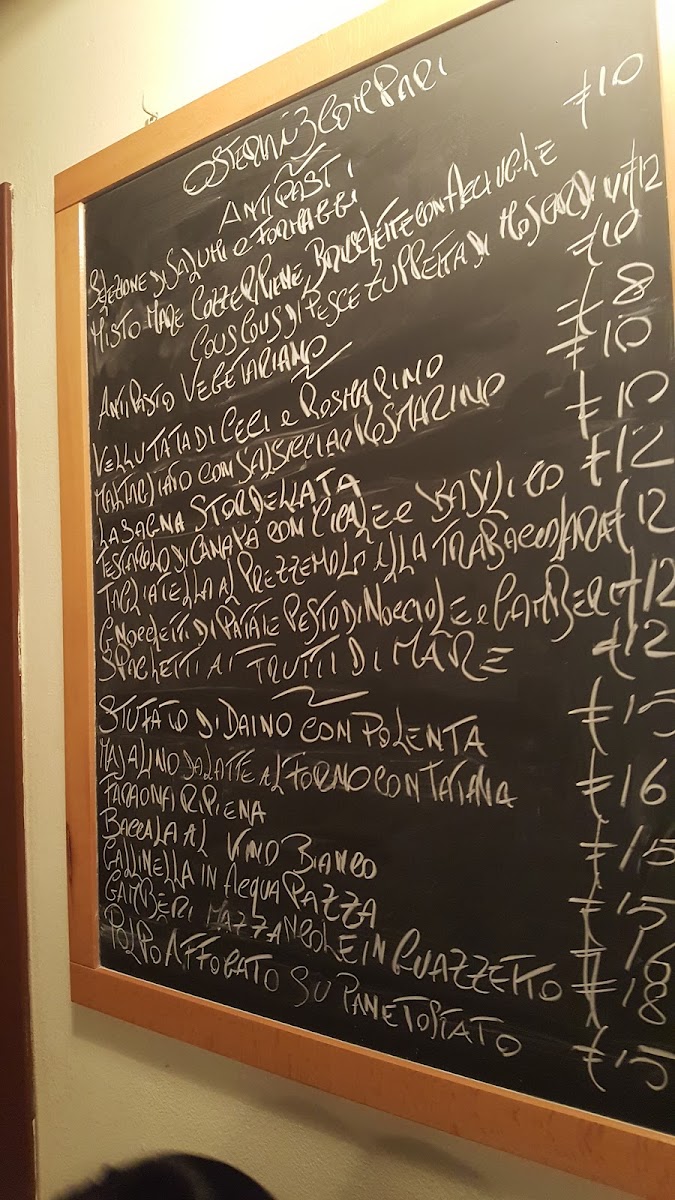 OSTERIA 3 COMPARI
ANTIPASTI
SELEZIONE DI SALUMI e FORMAGGI €10
MISTO MARE COZZE RIPIENE, BRUSCHETTE CON ACCIUGHE
COUS COUS DI PESCE ZUPPETTA DI MOSCARDINI €12
ANTIPASTO VEGETARIANO €10
VELLUTATA DI CECI e ROSMARINO €8
MALTAGLIATO CON SALSICCIA e ROSMARINO €10
LASAGNA STORDELLATA €10
TESTAROLO DI CANAVA CON e BASILICO €12
TAGLIATELLA AL PREZZEMOLO ALLA TRABACCOLARA €12
GNOCCHETTI DI PATATE PESTO DI NOCCIOLE e GAMBERI €12
SPAGHETTI AI FRUTTI DI MARE €12
STUFATO DI DAINO CON POLENTA €15
MAIALINO DA LATTE AL FORNO CON PATATE €16
FARAONA RIPIENA €15
BACCALA AL VINO BIANCO €15
GALLINELLA IN ACQUA PAZZA
GAMBERI MAZZANCOLLE IN GUAZZETTO €18
POLPO AFFOGATO SU PANE TOSTATO €15